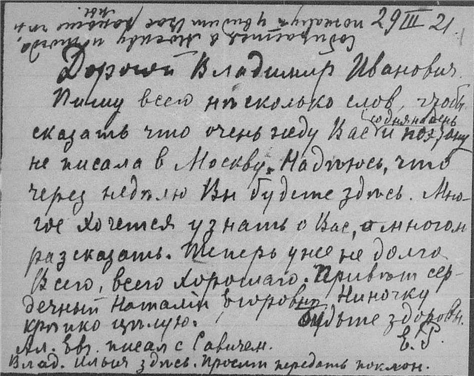 29 III 21.
Дорогой Владимир Иванович.
Пишу всего нѣсколько слов, чтобы
сказать что очень жду Вас и поэтому
не писала в Москву. Надѣюсь, что
через недѣлю Вы будете здѣсь. Мно-
гое хочется узнать о Вас, о многом
разсказать. Теперь уже не долго
Всего, всего хорошаго. Привѣт сер-
дечный Наталіи Егоровнѣ Ниночку
крѣпко цѣлую. Будьте здоровы.
Е. Р.
Ал. Евг. писал с Савичем.
Влад. Ильич здѣсь. Просит передать поклон.